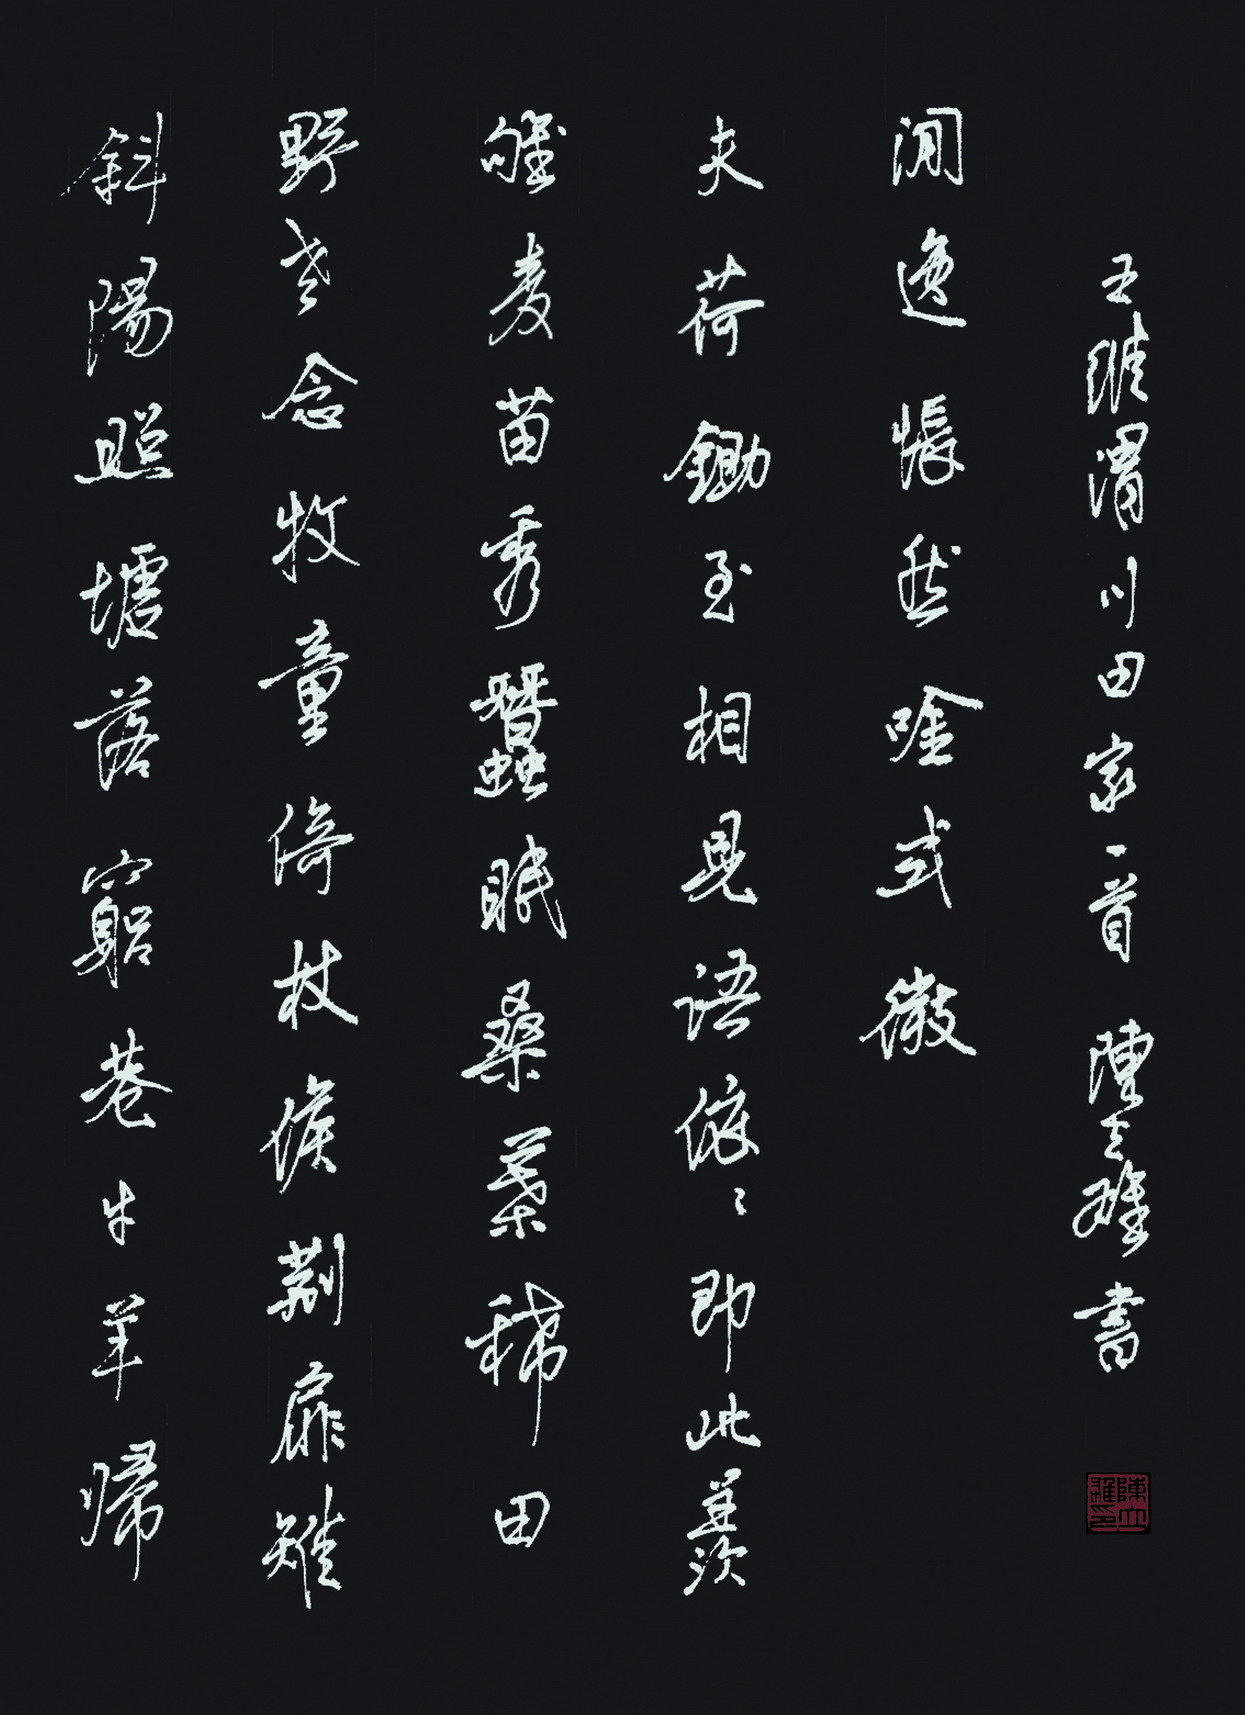 斜陽照墟落窮巷牛羊歸
野老念牧童倚杖候荊扉雉
雊麥苗秀蠶眠桑葉稀田
夫荷鋤至相見語依々即此羨
閒逸悵然唫式微
王維渭川田家一首 陳書